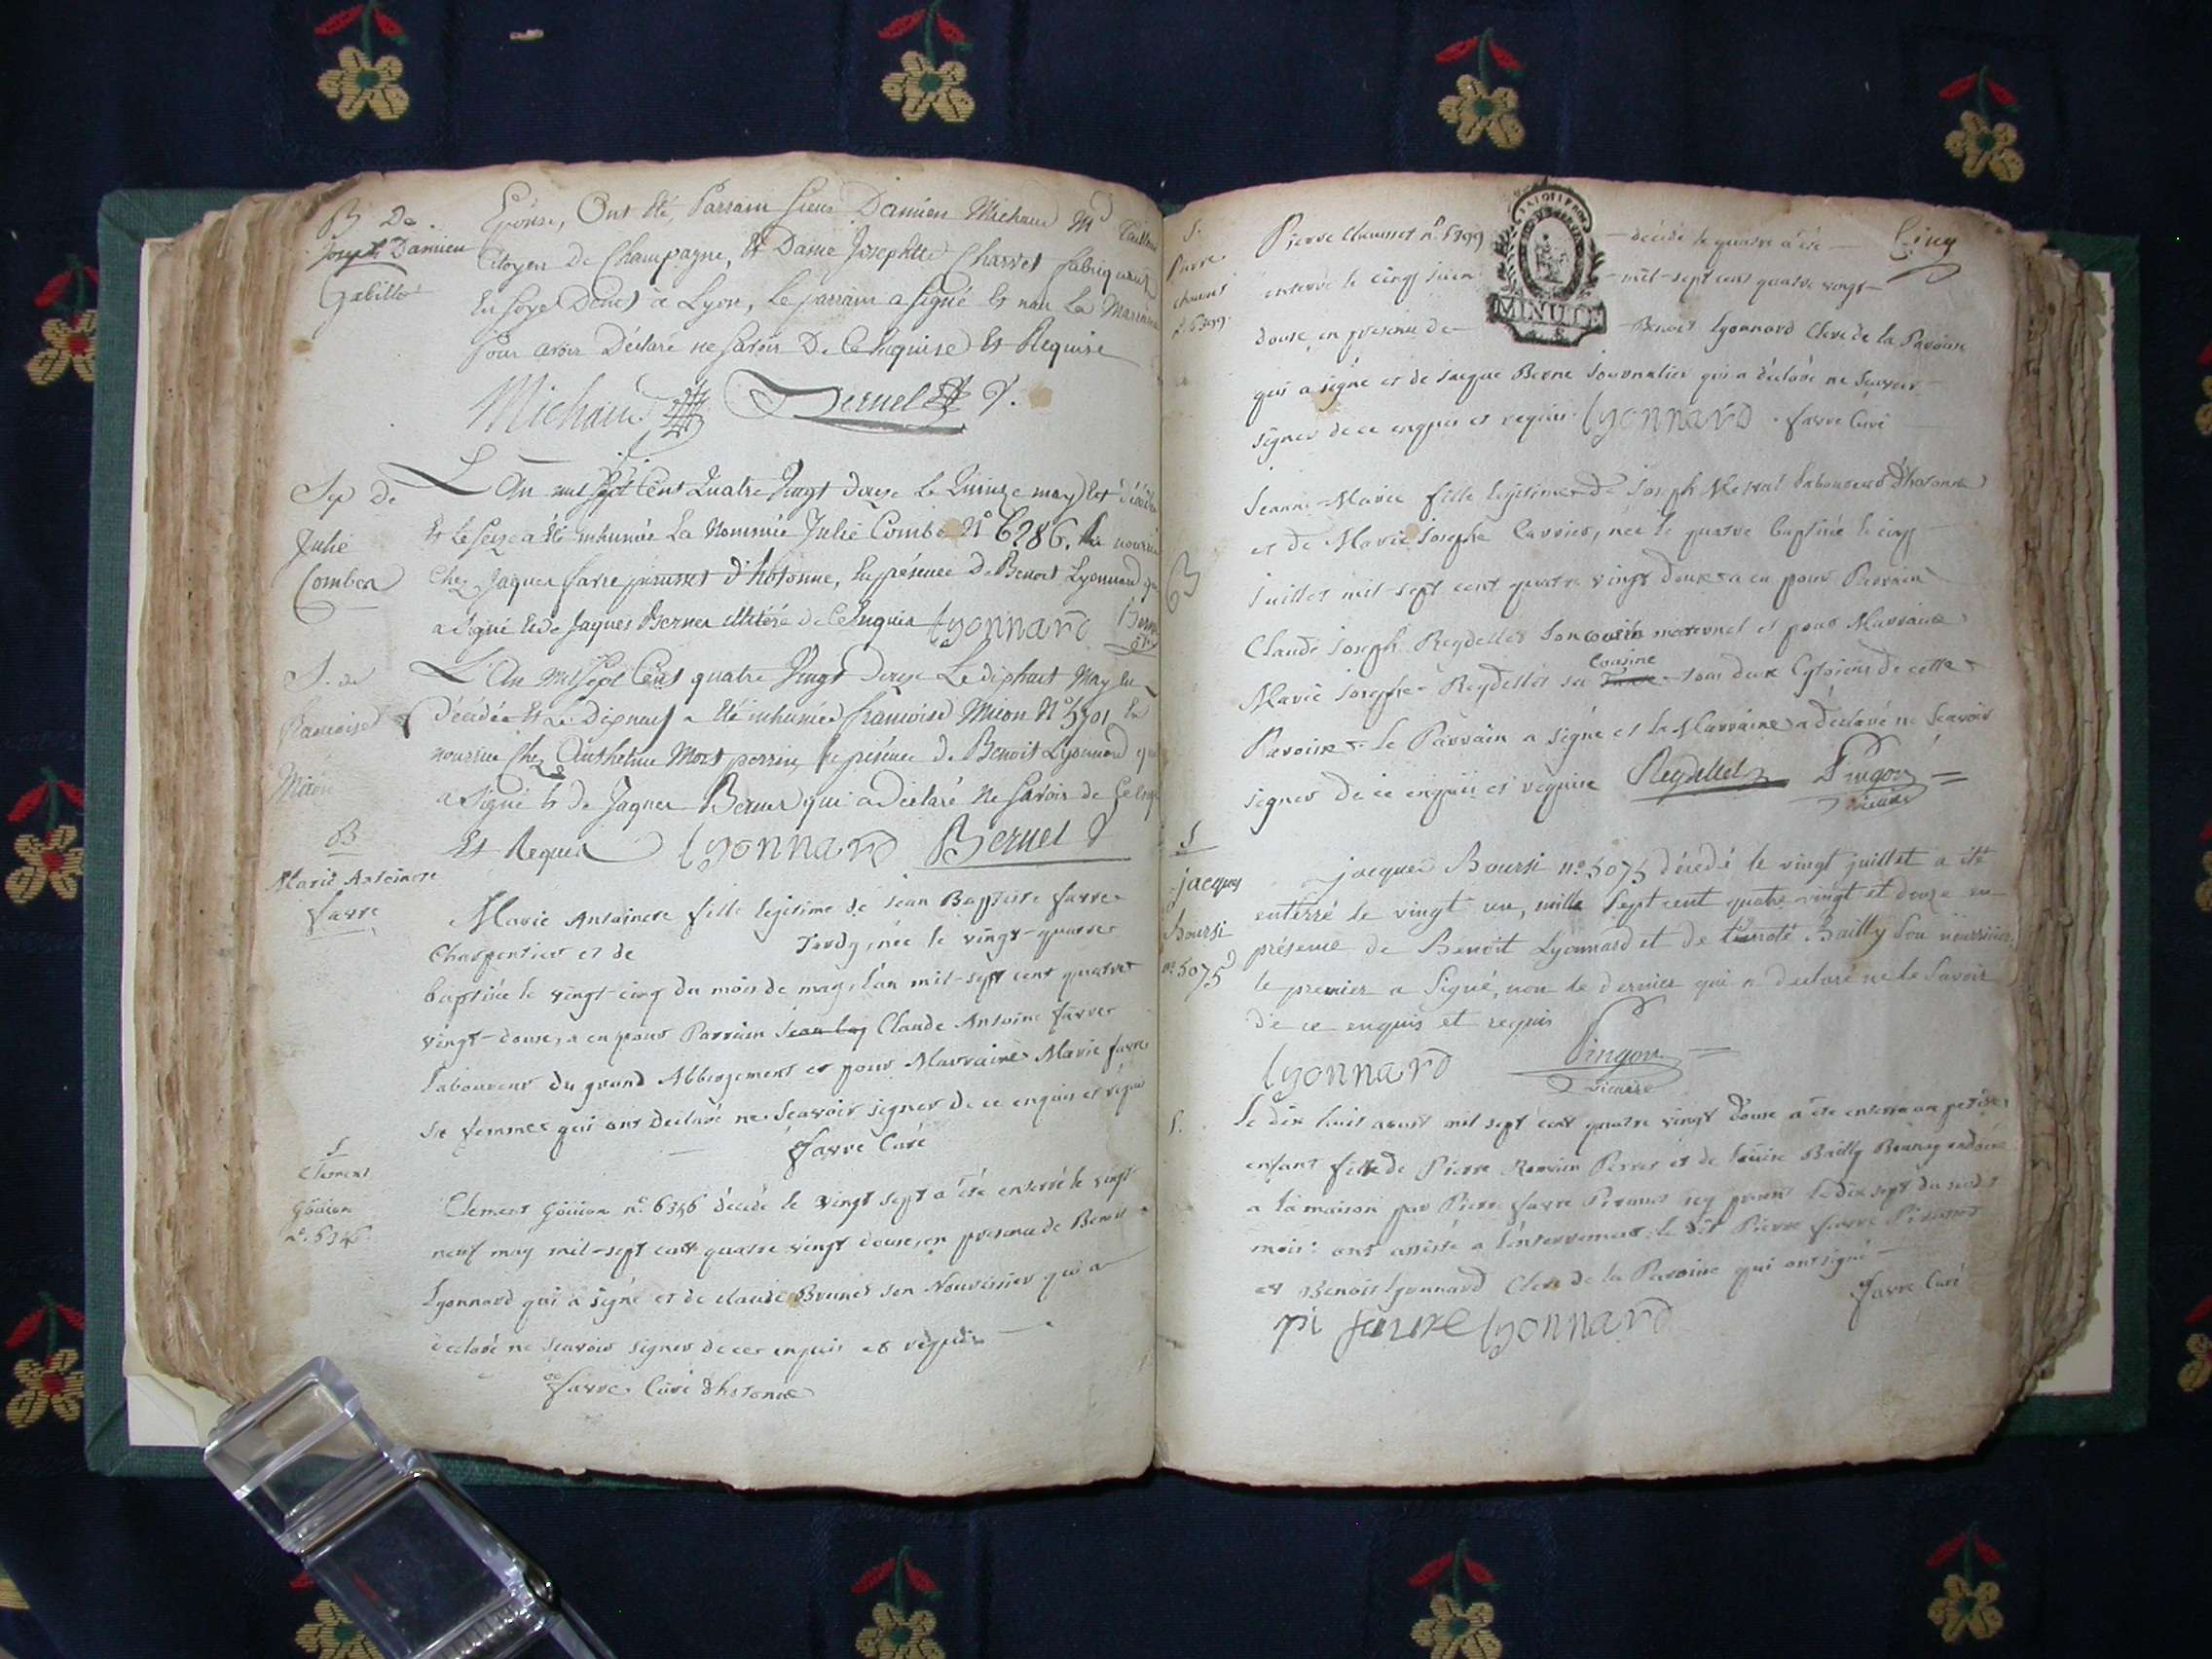 B De
Joseph Damien
Gabillo
Epouse, Ont été, Parrain sieur Damien Michaud Md Tailleur
Citoyen De Champagne, Et Dame Josephtte Charvet fabriquant
En Soye Demt a Lyon, Le parrain a signé Et non La Marraine
Pour avoir Déclaré ne savoir De Ce Enquise Et Requise
Michaud Bernel V.
Sep de
Julie
Comben
L'An mil sept Cent Quatre Vingt Douze Le Quinze may Est décédée
Et Le Seize a été inhumée La Nommée Julie Combe N° 6286. nourrie
Chez Jaques favre perusset d'hotonne, En présence De Benoit Lyonnard qui
a signé Et de Jaques Berner illitéré de Ce Enquis Lyonnard
S. de
francoise
Mion
L'An Mil Sept Cent quatre Vingt Douze Le dix huit May Est
décédée Et Le Dixneuf a été inhumée francoise Mion N° 5701
nourrie chez Anthelme Mort perrin, En présence De Benoit Lyonnard qui
a Signé Et de Jaques Berner qui a Déclaré Ne savoir de Ce
Et Requis Lyonnard Bernel V
B
Marie Antoinete
favre
Marie Antoinete fille legitime de Jean Baptiste favre
Charpentier et de Tardy, née le vingt-quatre
baptisée le vingt-cinq du mois de may, l'an mil-sept cent quatre
vingt-douze, a eu pour Parrain Jean Claude Antoine favre
Laboureur du grand Abbergement et pour Marraine Marie favre
sa femme qui ont declaré ne sçavoir signer de ce enquis et requis
favre Curé
S
Clement
Goüion
n°. 6346
Clement Goüion n°. 6346 décédé le vingt sept a été enterré le vingt
neuf may mil-sept cent quatre vingt douze, en presence de Benoit
Lyonnard qui a signé et de claude Brunet son Nourrissier qui a
declaré ne sçavoir signer de ce enquis et requis
favre Curé d'hotonne
S.
Pierre
chaumet
n° 6399
Pierre Chaumet n° 6399 décédé le quatre a été Cinq
enterré le cinq juin mil-sept cent quatre vingt
douze, en presence de Benoit lyonnard Clerc de la Paroisse
qui a signé et de Jacque Berne Journalier qui a déclaré ne sçavoir
signer de ce enquis et requis. lyonnard favre Curé
MINUTE
B
Jeanne-Marie fille legitime de Joseph Laboureur d'hotonne
et de Marie Josephe Carrier, née le quatre baptisée le cinq
Juillet mil-sept cent quatre vingt douze a eu pour Parrain
Claude Joseph Reydellet Son cousin maternel et pour Marraine
Marie Josephe Reydellet sa Cousine tous deux Cytoiens de cette
Paroisse. le Parrain a signé et la Marraine a déclaré ne sçavoir
signer de ce enquis et requise Reydellet Pingon
vicaire
S
jacques
Boursi
n° 5075
jacques Boursi n° 5075 décédé le vingt juillet a été
enterré le vingt un, mille sept cent quatre vingt et douze en
présence de Benoit Lyonnard et de Bailly Son nourricier,
le premier a Signé, non le dernier qui a declaré ne le Savoir
de ce enquis et requis
Lyonnard Pingon
vicaire
S.
Le dix huit aoust mil sept cent quatre vingt douze a été enterré un petit
enfant fille de Pierre Romain Perret et de Louise Bailly Benney ondoiée
a la maison par Pierre favre Perusset le dix sept du susdit
mois: ont assisté a l'enterrement, le dit Pierre favre Perusset
et Benoit lyonnard Clerc de la Paroisse qui ont signé
pi favre lyonnard favre Curé